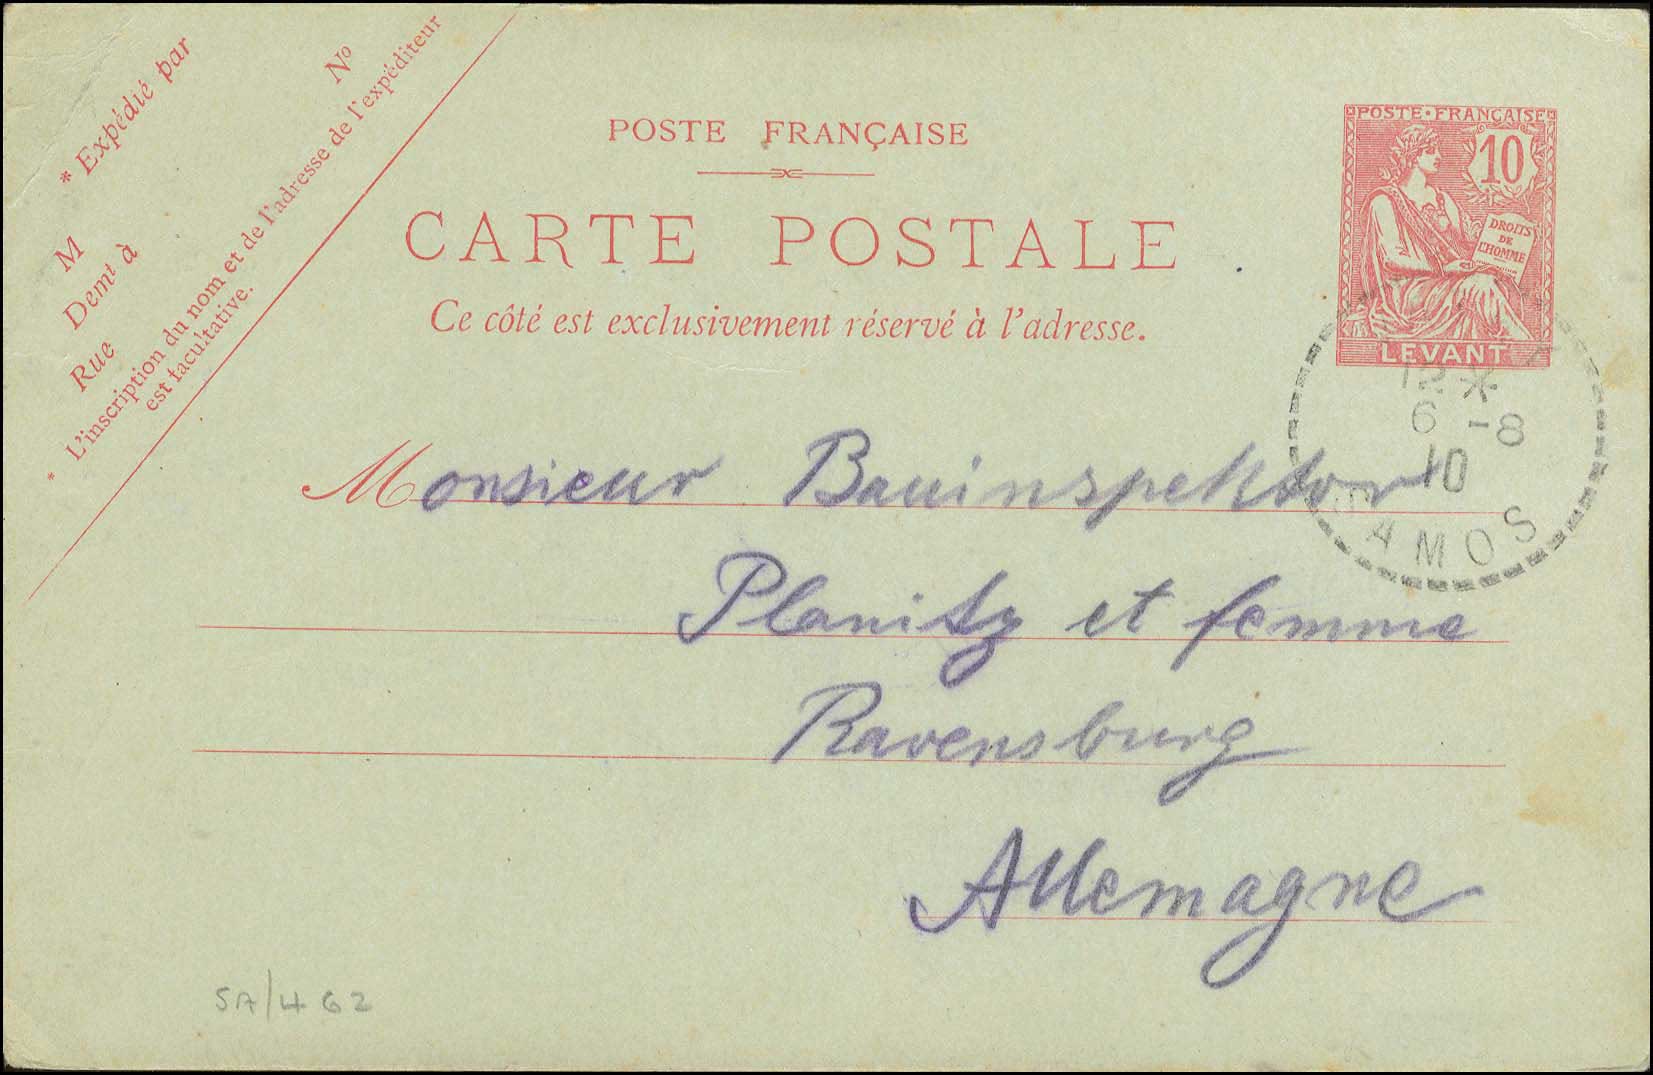 * Expédié par
M
N°
Demt à
Rue
* L'inscription du nom et de l'adresse de l'expéditeur
est facultative.
POSTE FRANÇAISE
CARTE POSTALE
Ce côté est exclusivement réservé à l'adresse.
POSTE • FRANÇAISE
10
DROITS
DE
L'HOMME
LEVANT
12 *
6 -8
10
SAMOS
Monsieur Bauinspektor
Planitz et femme
Ravensburg
Allemagne
5A/4 G2